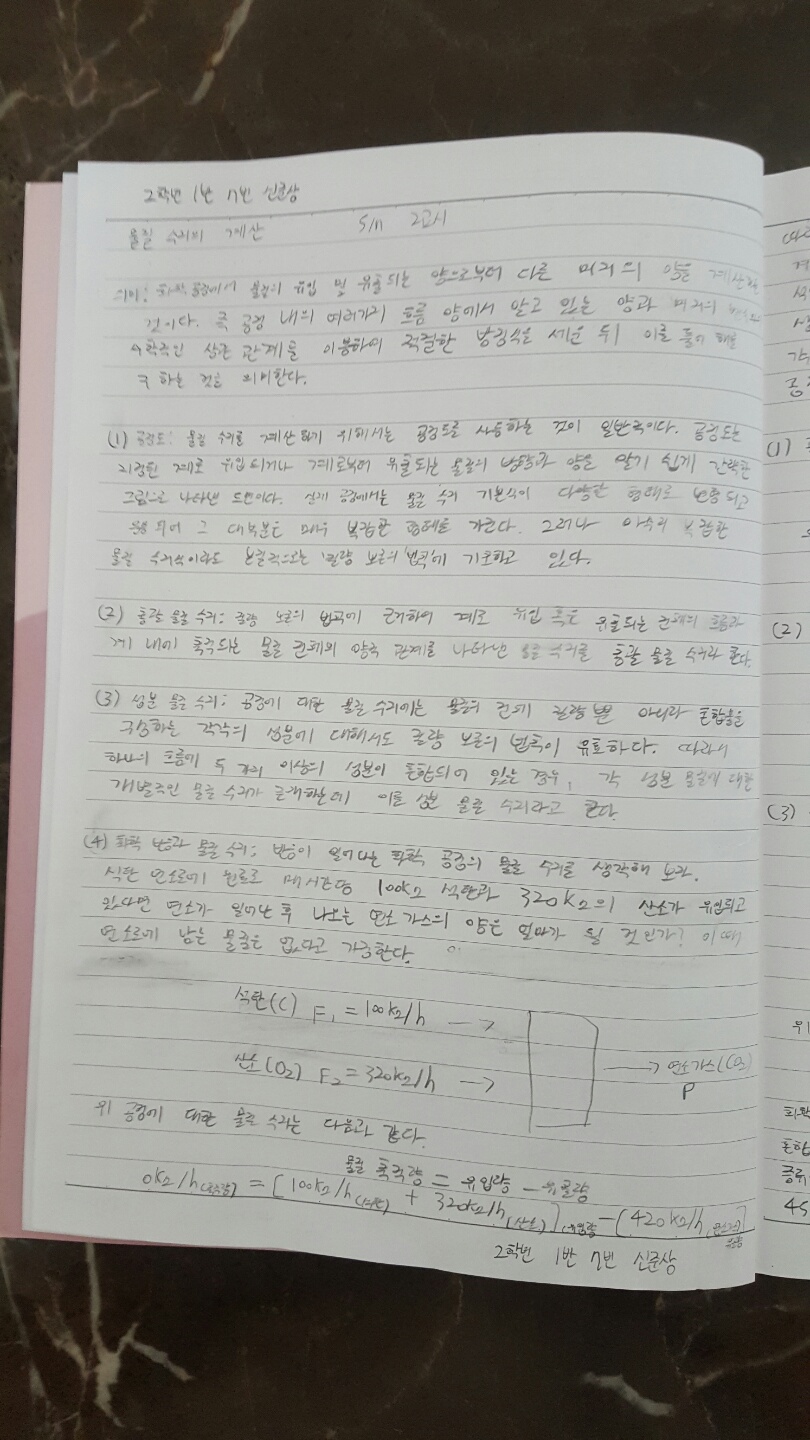 2학년 1반 7번 신준상
물질 수지의 계산 5/11 2교시
의미: 화학 공정에서 물질의 유입 및 유출되는 양으로부터 다른 미지의 양을 계산하는
것이다. 즉 공정 내의 여러가지 흐름 양에서 알고 있는 양과 미지의
수학적인 상관 관계를 이용하여 적절한 방정식을 세운 뒤 이를 풀어 해를
구하는 것을 의미한다.
(1) 공정도: 물질 수지를 계산하기 위해서는 공정도를 사용하는 것이 일반적이다. 공정도는
지정된 계로 유입되거나 계로부터 유출되는 물질의 방향과 양을 알기 쉽게 간략한
그림으로 나타낸 도면이다. 실제 공정에서는 물질 수지 기본식이 다양한 형태로 변형되고
되어 그 대부분은 매우 복잡한 형태를 가진다. 그러나 아무리 복잡한
물질 수지식이라도 본질적으로는 '질량 보존의 법칙'에 기초하고 있다.
(2) 총괄 물질 수지: 질량 보존의 법칙에 근거하여 계로 유입 혹은 유출되는 전체의 흐름과
계 내에 축적되는 물질 전체의 양적 관계를 나타낸 물질 수지를 총괄 물질 수지라 한다.
(3) 성분 물질 수지: 공정에 대한 물질 수지에는 물질의 전체 질량 뿐 아니라 혼합물을
구성하는 각각의 성분에 대해서도 질량 보존의 법칙이 유효하다. 따라서
하나의 흐름에 두 가지 이상의 성분이 혼합되어 있는 경우, 각 성분 물질에 대한
개별적인 물질 수지가 존재하는데 이를 성분 물질 수지라고 한다.
(4) 화학 반응과 물질 수지: 반응이 일어나는 화학 공정의 물질 수지를 생각해 보자.
석탄 연소로에 원료로 매시간당 100kg 석탄과 320kg의 산소가 유입되고
있다면 연소가 일어난 후 나오는 연소 가스의 양은 얼마가 될 것인가? 이때
연소로에 남는 물질은 없다고 가정한다.
석탄(C) F₁=100kg/h →
산소(O₂) F₂=320kg/h → → 연소가스(CO₂)
P
위 공정에 대한 물질 수지는 다음과 같다.
물질 축적량 = 유입량 - 유출량
0kg/h(축적량) = [100kg/h(석탄) + 320kg/h(산소)]유입량 - [420kg/h(연소가스)]유출량
2학년 1반 7번 신준상
(1)
(2)
(3)